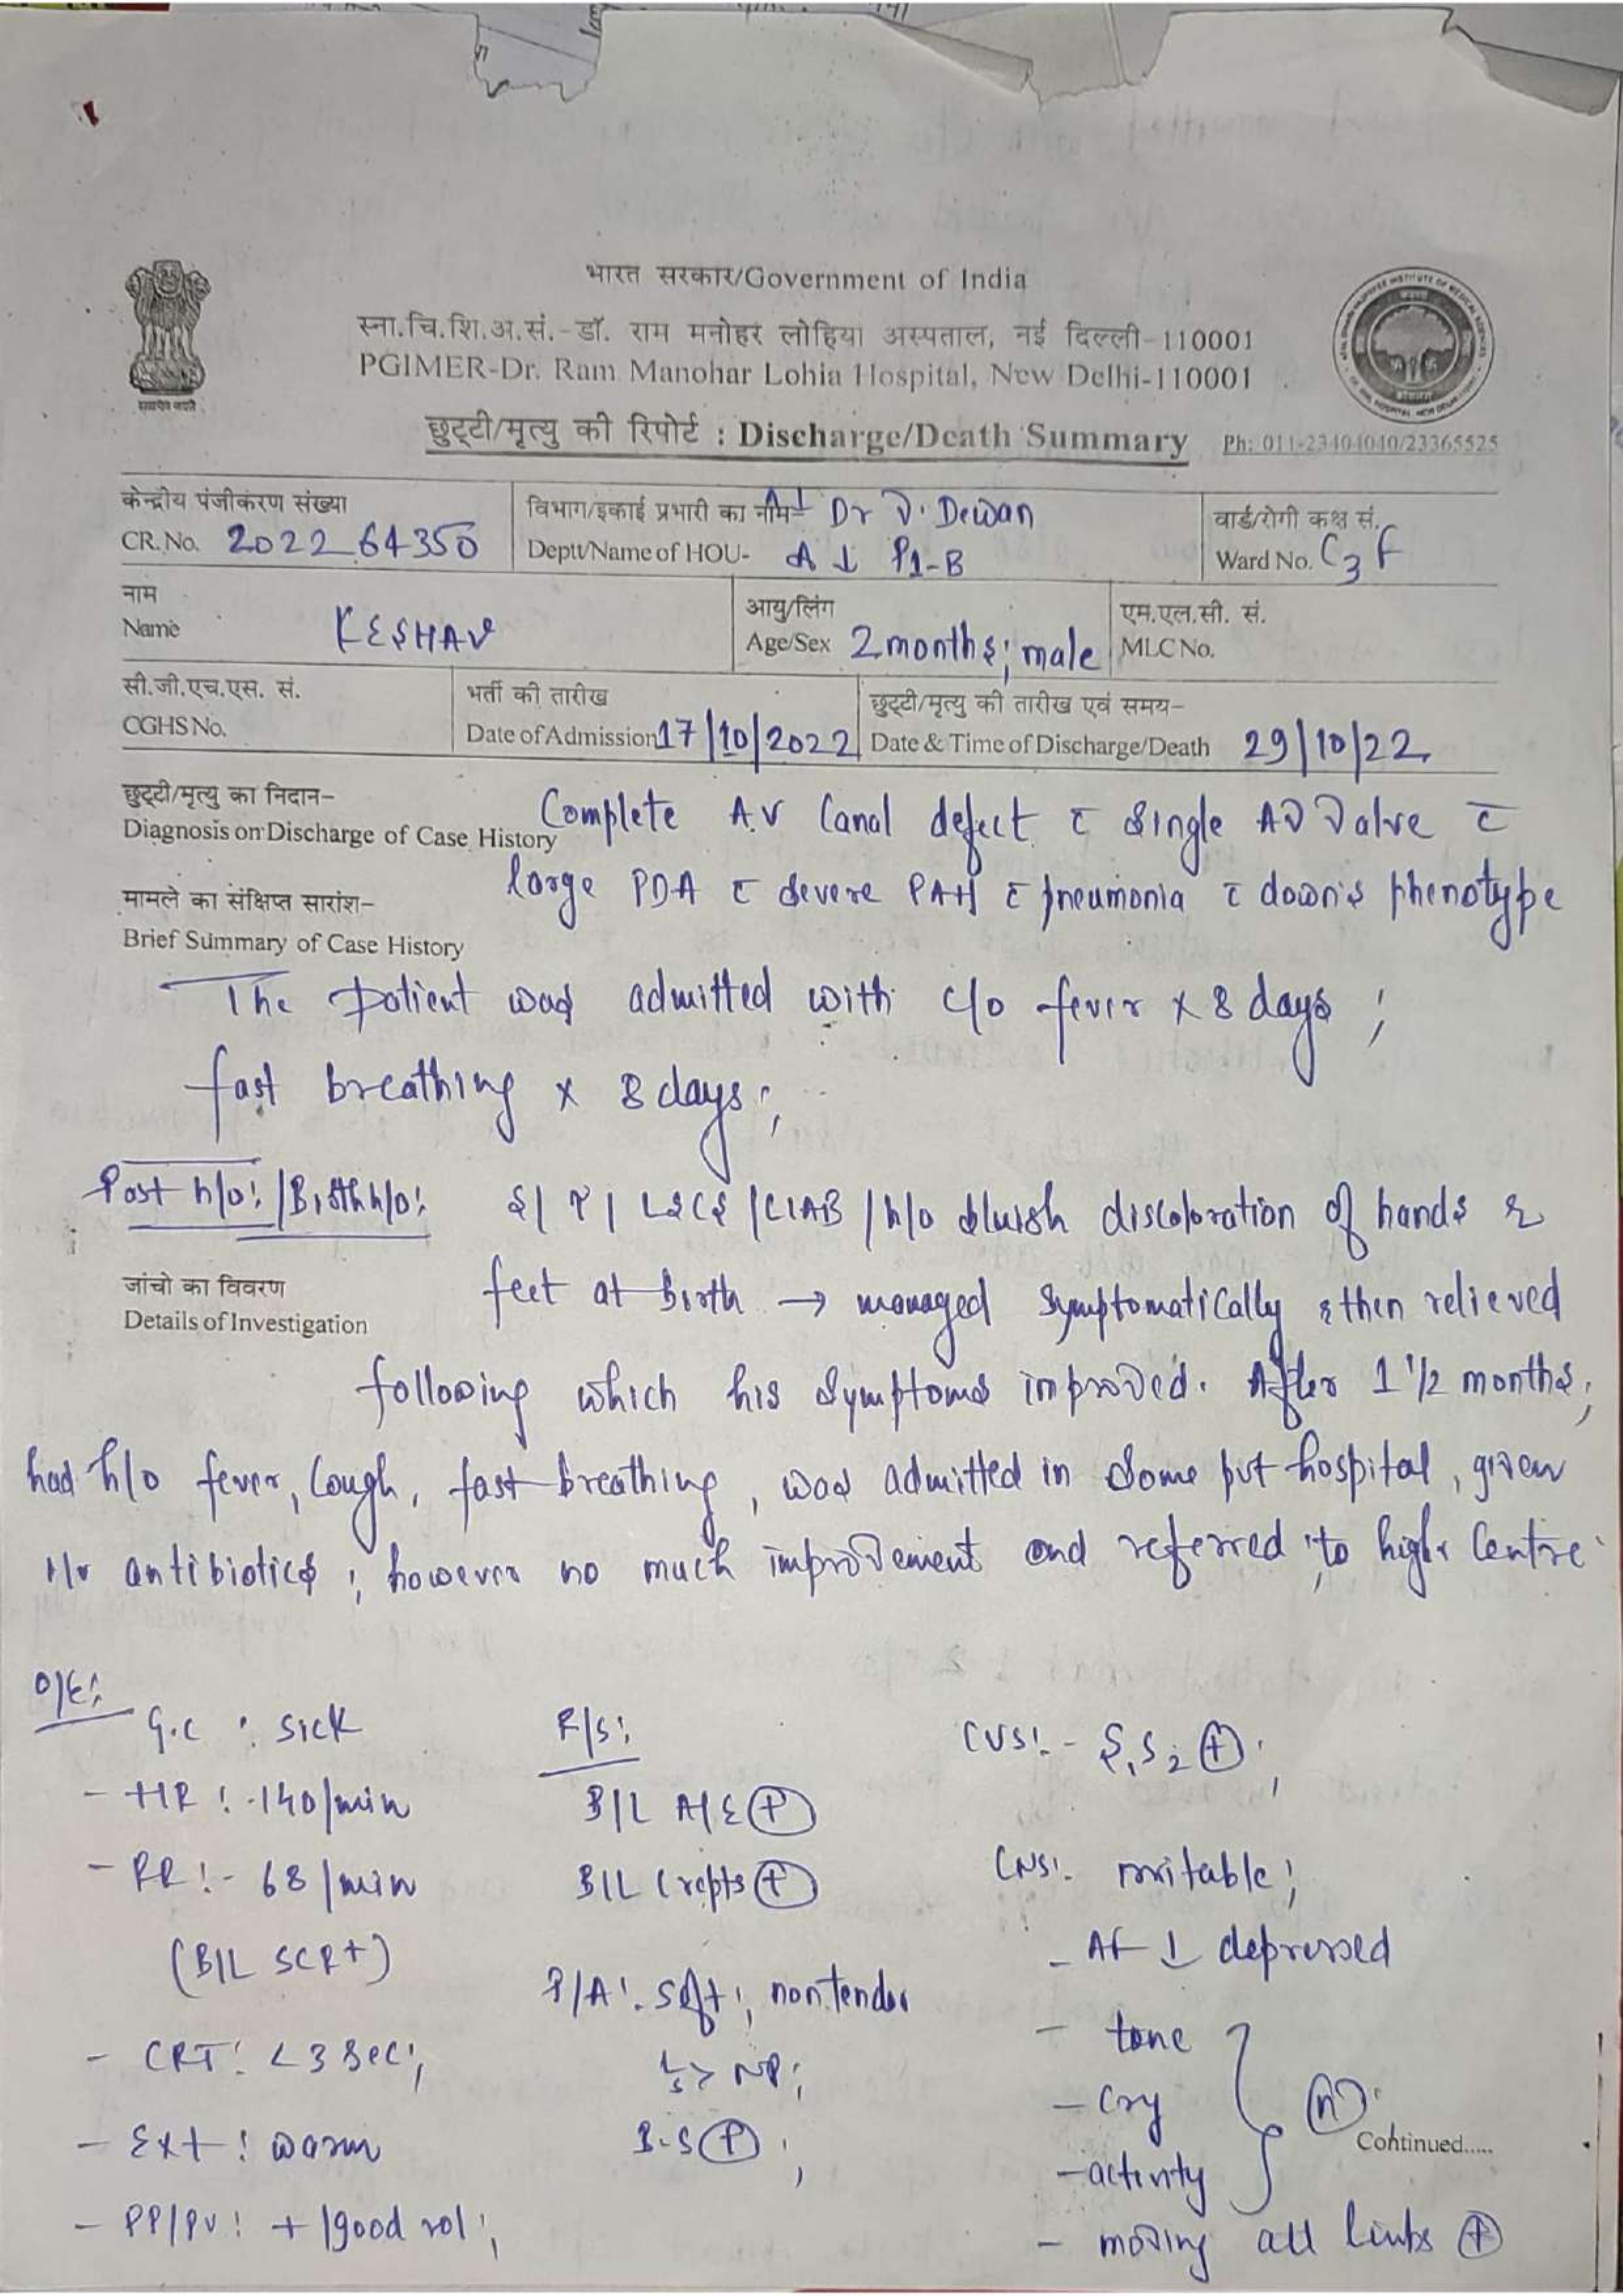 भारत सरकार/Government of India
स्ना.चि.शि.अ.सं.-डॉ. राम मनोहर लोहिया अस्पताल, नई दिल्ली-110001
PGIMER-Dr. Ram Manohar Lohia Hospital, New Delhi-110001
छुट्टी/मृत्यु की रिपोर्ट : Discharge/Death Summary Ph: 011-23404040/23365525
केन्द्रीय पंजीकरण संख्या
CR. No. 2022 64350
विभाग/इकाई प्रभारी का नाम- Dr D. Dewan
Deptt/Name of HOU- P1-B
वार्ड/रोगी कक्ष सं.
Ward No. C3 F
नाम
Name KESHAV
आयु/लिंग
Age/Sex 2 months; male
एम.एल.सी. सं.
MLC No.
सी.जी.एच.एस. सं.
CGHS No.
भर्ती की तारीख
Date of Admission 17/10/2022
छुट्टी/मृत्यु की तारीख एवं समय-
Date & Time of Discharge/Death 29/10/22
छुट्टी/मृत्यु का निदान-
Diagnosis on Discharge of Case History
Complete A.V Canal defect c̄ single AV Valve c̄
large PDA c̄ severe PAH c̄ pneumonia c̄ down's phenotype
मामले का संक्षिप्त सारांश-
Brief Summary of Case History
The patient was admitted with c/o fever x 8 days ;
fast breathing x 8 days ;
Past h/o: / Birth h/o: LSCS / CIAB / h/o bluish discoloration of hands &
जांचो का विवरण
Details of Investigation
feet at birth → managed symptomatically & then relieved
following which his symptoms improved. After 1 1/2 months;
had h/o fever, cough, fast breathing, was admitted in some pvt hospital, given
i/v antibiotics ; however no much improvement and referred to higher centre
O/E:
G.C : sick
- HR :- 140/min
- RR :- 68/min
(B/L SCR+)
- CRT : <3 sec ;
- Ext : warm
- PP/PV : + / good vol ;
R/S:
B/L A/E ⊕
B/L Crepts ⊕
P/A : soft ; non tender
NP ;
B.S ⊕ ;
CVS :- S1 S2 ⊕ ;
CNS :- irritable ;
- AF depressed
- tone
- cry
- activity
(n)
- moving all limbs ⊕
Continued.....